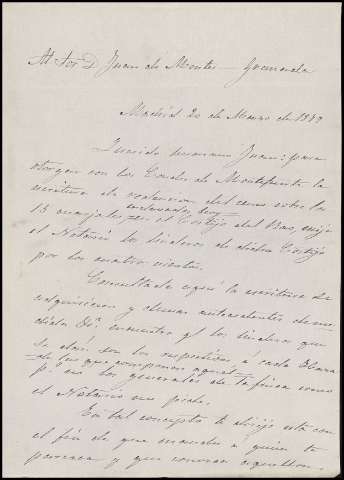 Al Sor. D. Juan de Montes - Granada
Madrid 20 de Marzo de 1889
Querido hermano Juan: para
otorgar con los Condes de Montefuerte la
escritura de redencion del censo sobre los
enclavados hoy
13 marjales en el Cortijo del Bao, exije
el Notario los linderos de dicho Cortijo
por los cuatro vientos.
Consultada aquí la escritura de
adquisicion y demas antecedentes de mi
dicho encuentro q. los linderos que
se dan son los respectivos á cada Haza
de las que componen aquel
pº. no los generales de la finca como
el Notario me pide.
En tal concepto te dirijo esta con
el fin de que mandes á quien te
parezca y que conozca aquellos